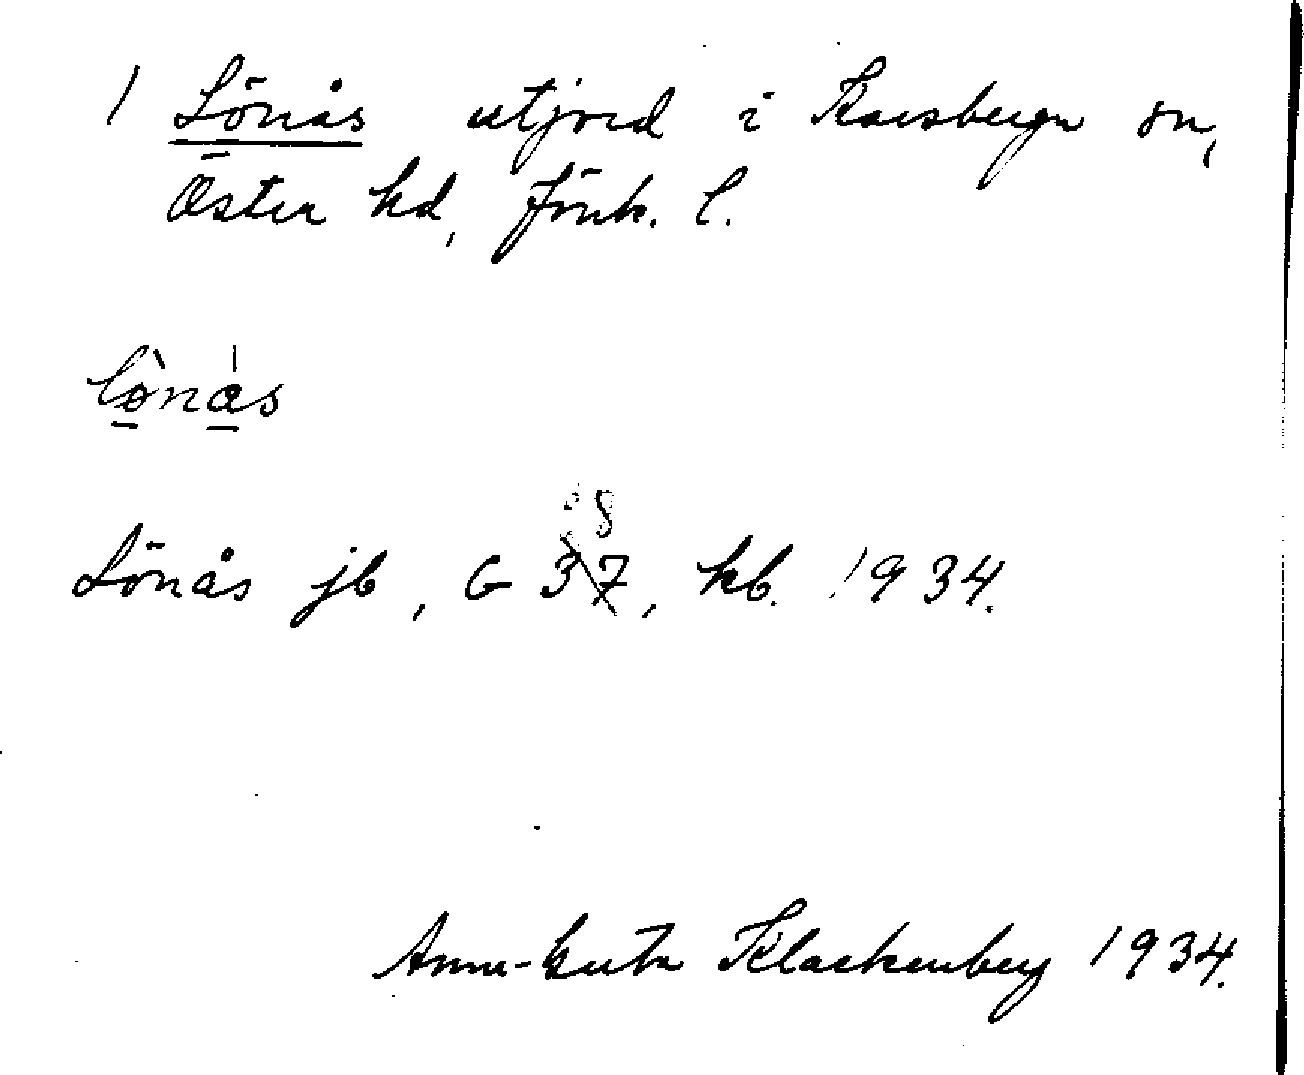 1 Lönås utjord i Karsbergn sn,
Öster hd, Jönk. l.
lònás
8
Lönås jb, G 37, kb. 1934.
Klackenberg 1934.